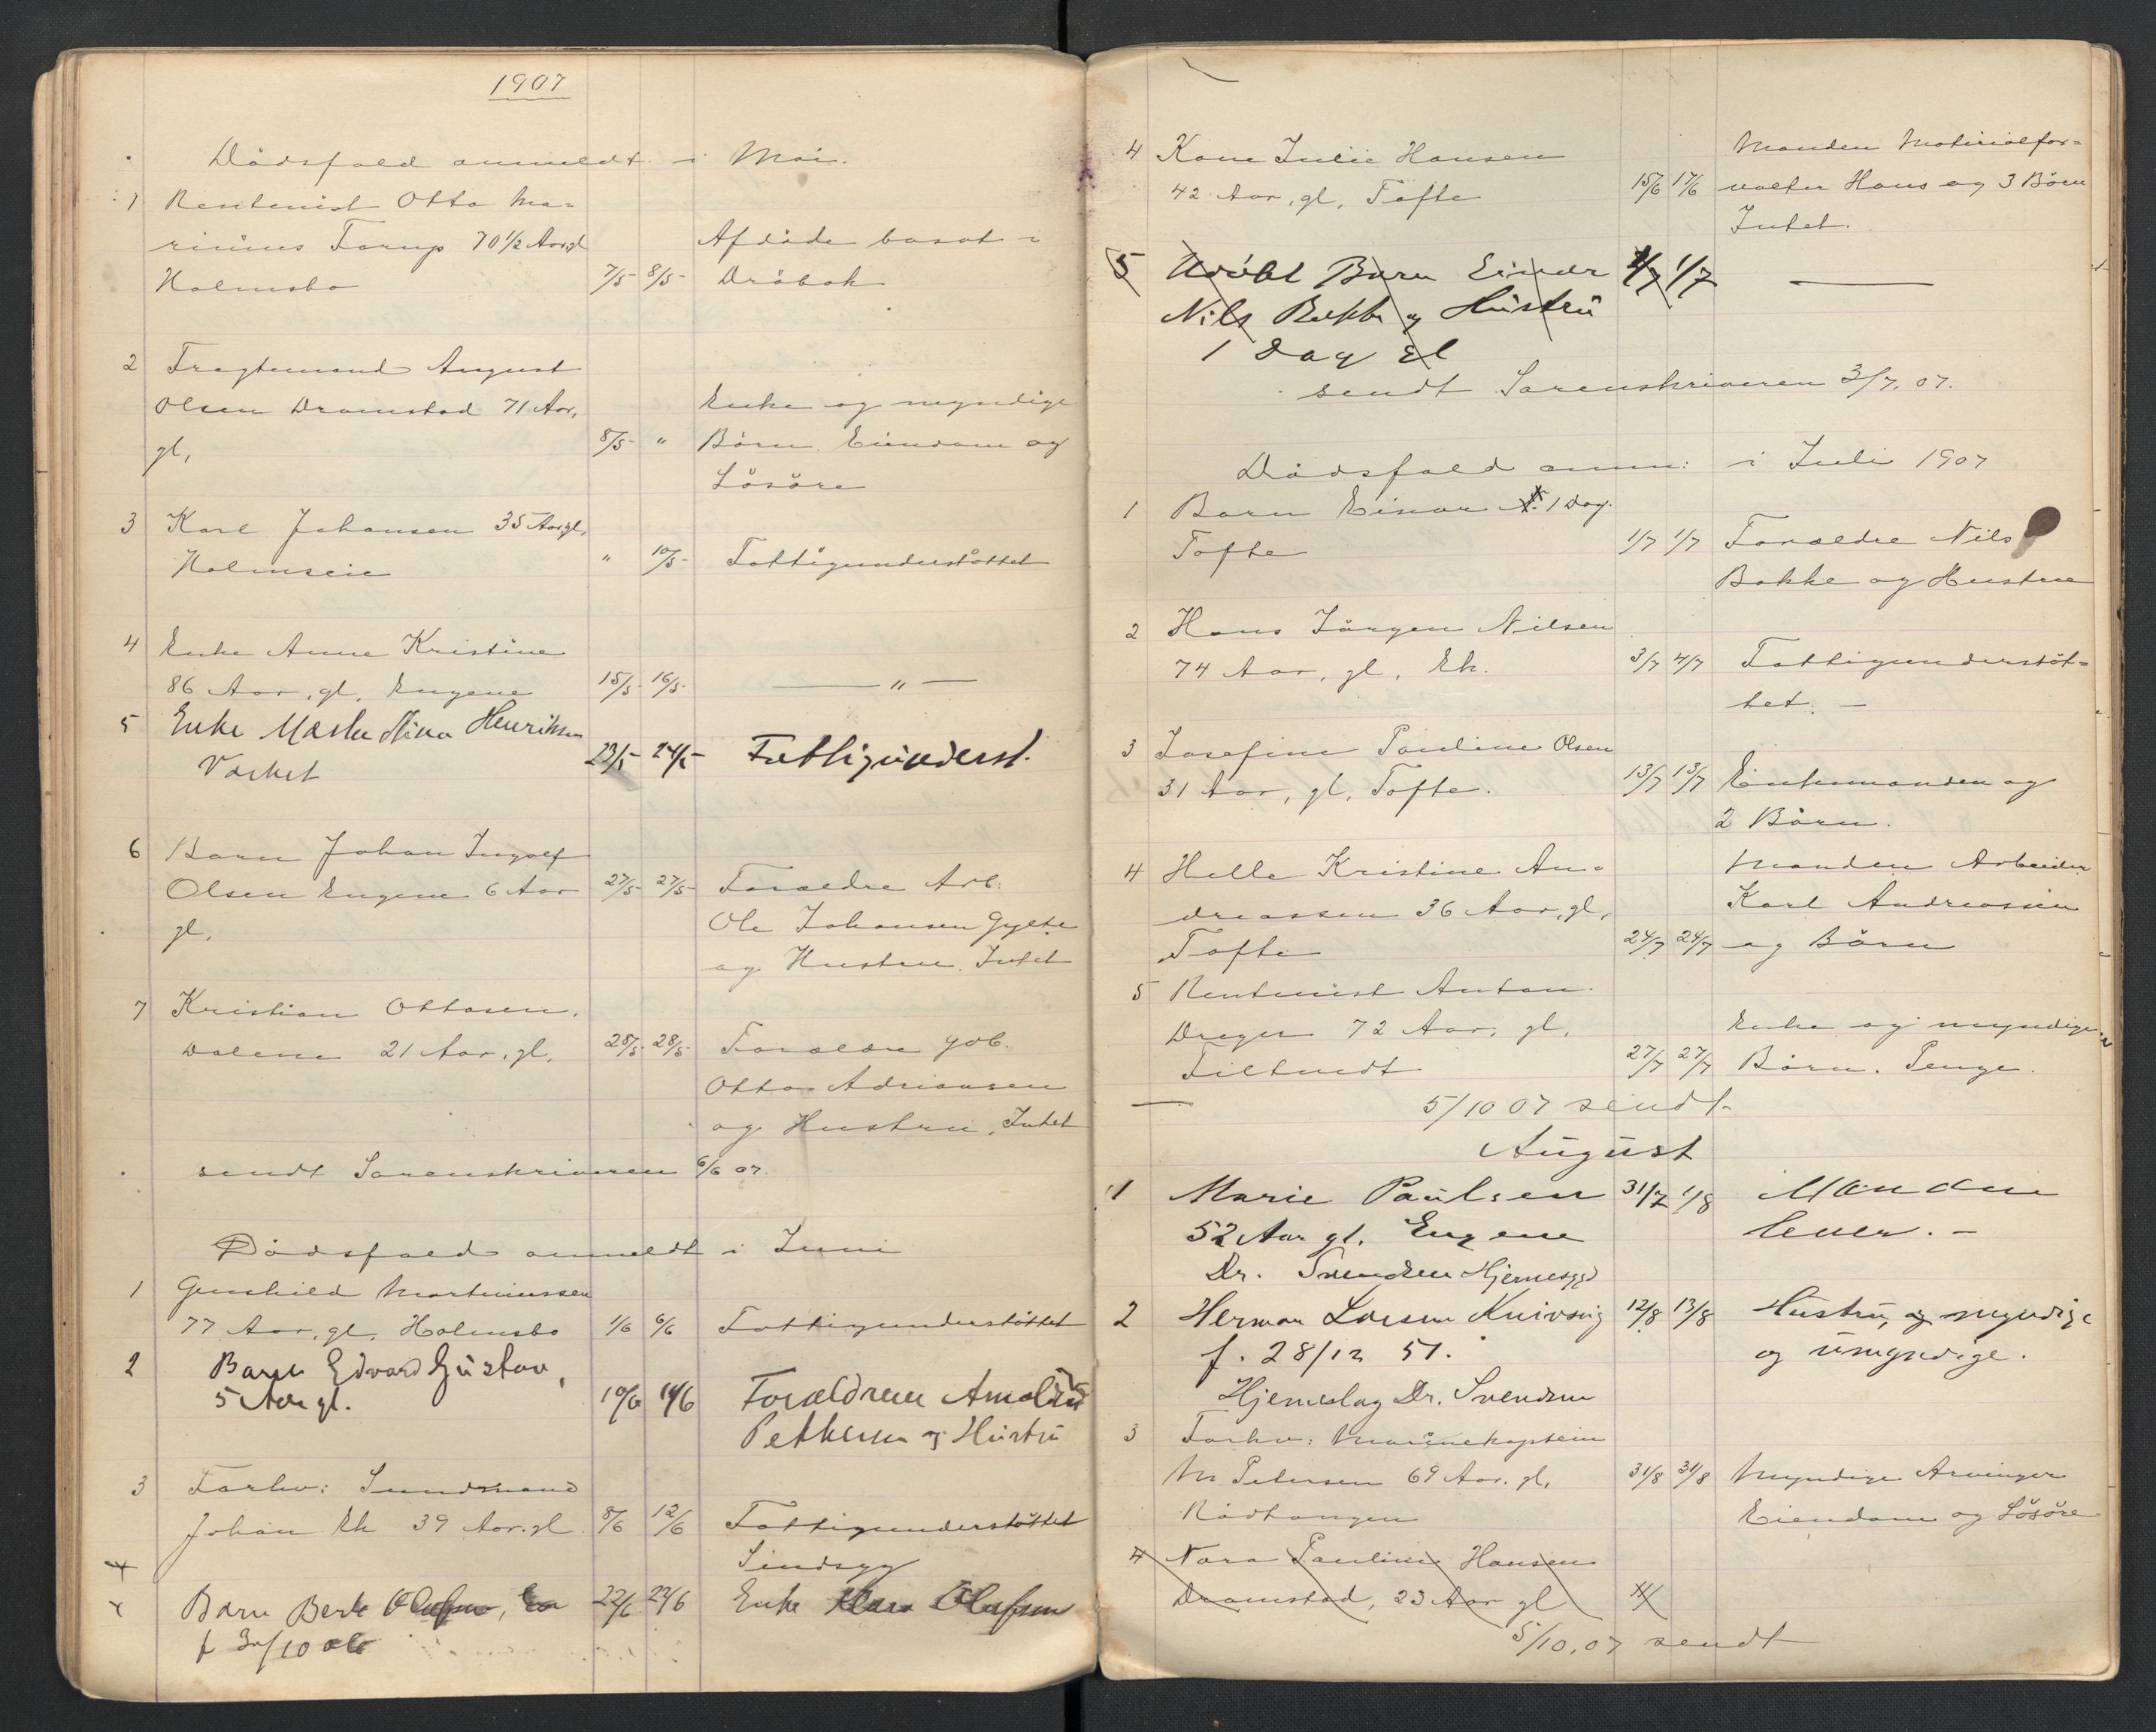 1907
Dödsfald anmeldt i Mai.
1 Rentenist Otto Ma=
rinius Torup 70 1/2 Aar gl
Afdöde bosat i
Holmsbo 7/5 8/5 Dröbak
2 Fragtemand August
Olsen Dramstad 71 Aar,
Enke og myndige
gl, 8/5 " Börn. Eiendom og
Lösöre
3 Karl Johansen 35 Aar gl,
Holmseie " 10/5 Fattigunderstöttet
4 Enke Anne Kristine
86 Aar, gl, Engene 15/5 16/5 — " —
5 Enke Stina Henriksen
23/5 24/5 Fattigunderst.
6 Barn Johan Ingolf
Olsen Engene 6 Aar 27/5 27/5 Forældre Arb.
gl, Ole Johansen Gylte
og Hustru. Intet
7 Kristian Ottosen,
Dalene 21 Aar, gl, 28/5 28/5 Forældre
Otto Adriansen
og Hustru, Intet
sendt Sorenskriveren 6/6 07.
Dödsfald anmeldt i Juni
1 Gunhild Martinussen
77 Aar, gl, Holmsbo 1/6 6/6 Fattigunderstöttet
2 Barn Edvard Gustav,
5 Aar gl. 10/6 14/6 Forældrene
Pettersen og Hustru
3 Forhv: Sundmand
Johan Ek 39 Aar. gl 8/6 12/6 Fattigunderstöttet
Sindsyg
Barn 22/6 22/6 Enke Olafsen
4 Kone Julie Hansen Manden Materialfor=
42 Aar, gl, Tofte 15/6 17/6 valter Hans og 3 Börn
Intet.
5 Udöbt Barn Einar 1/7 1/7 —
Nils Bakke og Hustru
1 Dag gl
sendt Sorenskriveren 3/7. 07.
Dödsfald anm: i Juli 1907
1 Barn Einar 1 Dag.
Tofte 1/7 1/7 Forældre Nils
Bakke og Hustru
2 Hans Jörgen Nilsen
74 Aar, gl, Ek. 3/7 4/7 Fattigunderstöt=
tet. —
3 Josefine Pauline Olsen
31 Aar, gl, Tofte. 13/7 13/7 Enkemanden og
2 Börn.
4 Helle Kristine An= Manden Arbeider
dreassen 36 Aar, gl, Karl Andreassen
Tofte 24/7 24/7 og Börn
5 Rentenist Anton
Dreyer 72 Aar, gl, Enke og myndige
Filtvedt 27/7 27/7 Börn. Penge.
5/10 07 sendt
August
1 Marie Paulsen 31/7 1/8 Manden
52 Aar gl. Engene lever. —
Dr. Svendsen
2 Herman Larsen Knivsvig 12/8 13/8 Hustru, og myndige
f. 28/12 51. og umyndige.
Hjerneslag Dr. Svendsen
3 Forhv: Marinekaptein
M Petersen 69 Aar. gl, 31/8 31/8 Myndige Arvinger
Rödtangen Eiendom og Lösöre
4 Nora Pauline Hansen
Dramstad, 23 Aar gl
5/10. 07 sendt